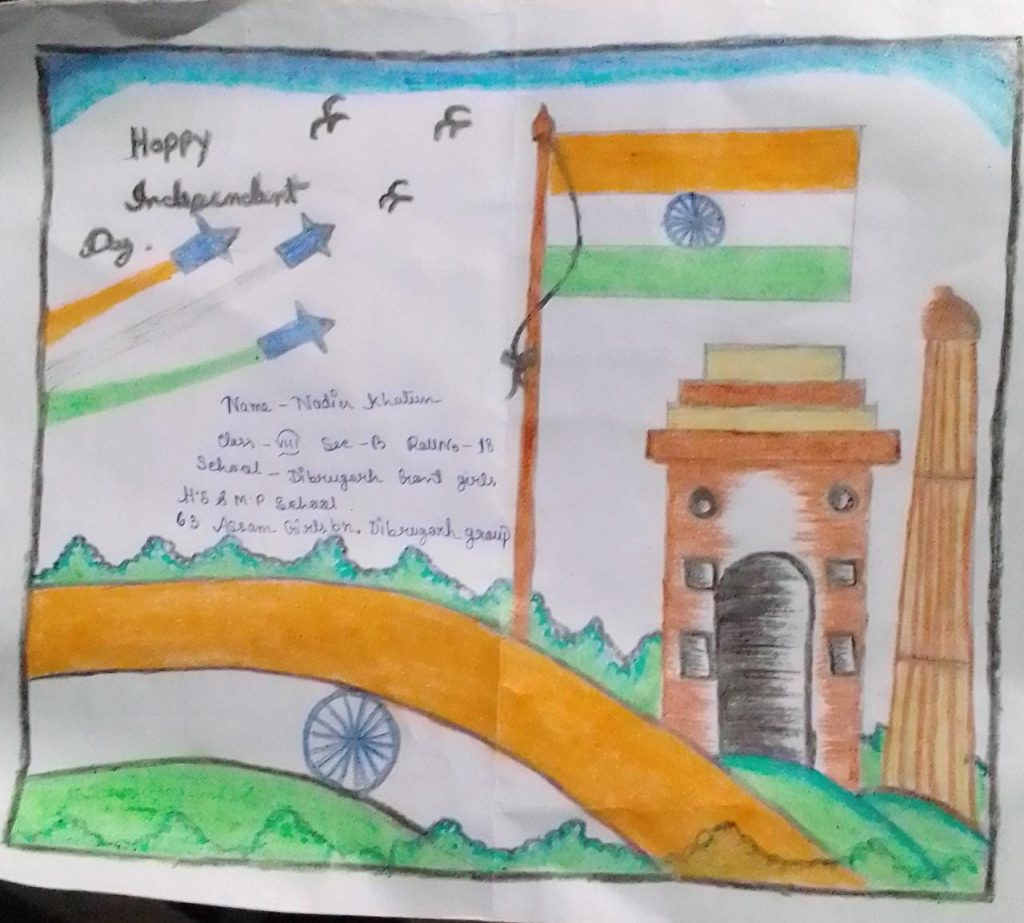 Happy
Independent
Day.
Name - Nadier Khatun
Class - VIII Sec - B Roll No - 18
School - Dibrugarh Govt girls
H S & M P School
63 Assam Girls bn. Dibrugarh group